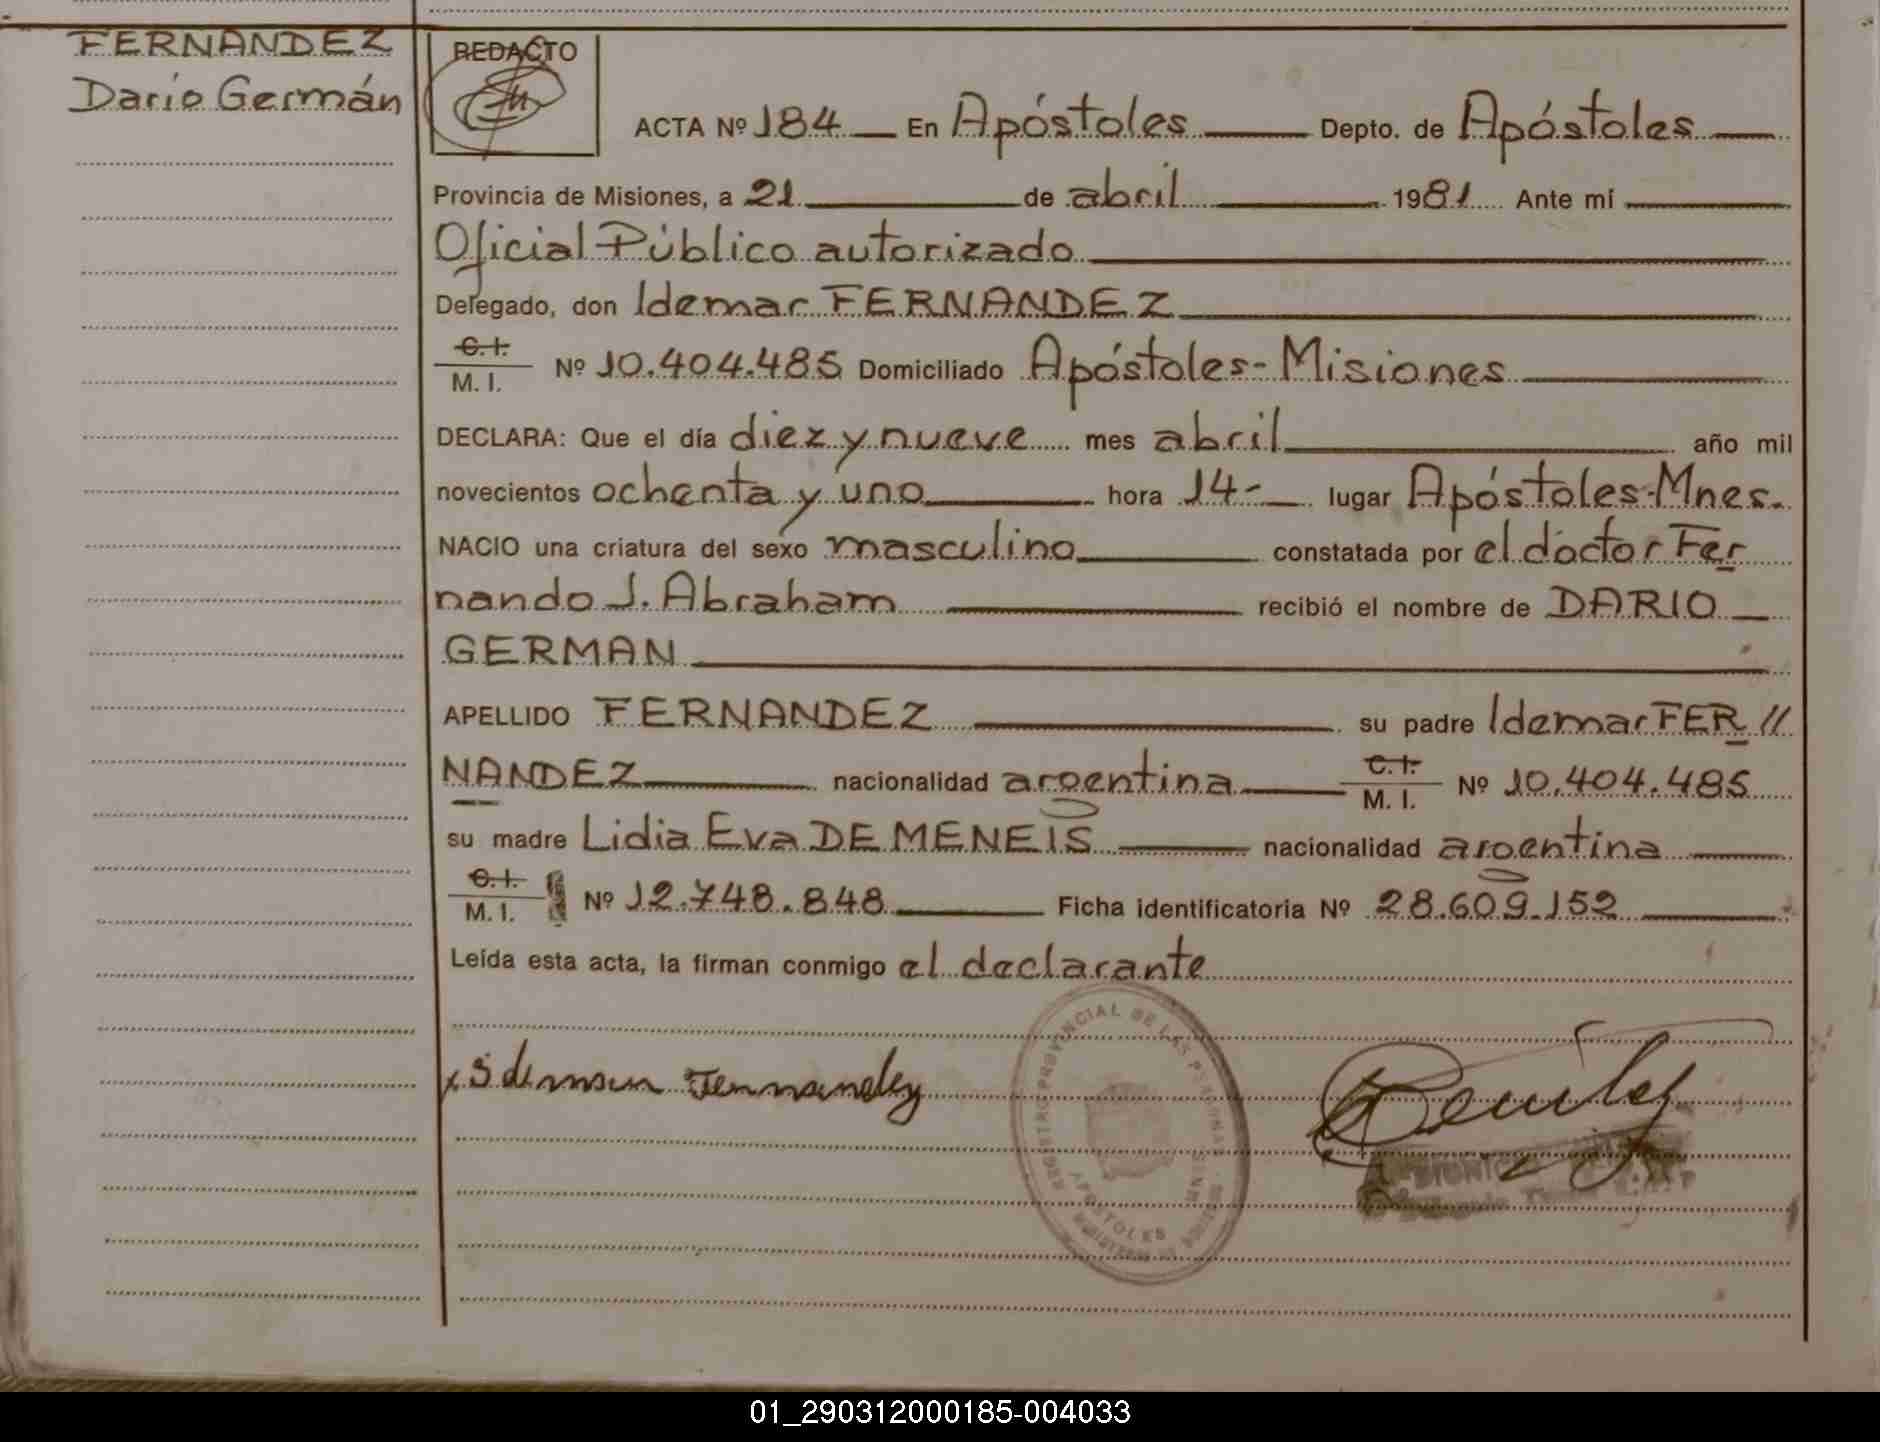 FERNANDEZ
Darío Germán
REDACTO
ACTA Nº 184 En Apóstoles Depto. de Apóstoles
Provincia de Misiones, a 21 de abril 1981 Ante mí
Oficial Público autorizado
Delegado, don Idemar FERNANDEZ
C. I.
M. I. Nº 10.404.485 Domiciliado Apóstoles-Misiones
DECLARA: Que el día diez y nueve mes abril año mil
novecientos ochenta y uno hora 14- lugar Apóstoles-Mnes.
NACIO una criatura del sexo masculino constatada por el doctor Fer
nando J. Abraham recibió el nombre de DARIO
GERMAN
APELLIDO FERNANDEZ su padre Idemar FER //
NANDEZ nacionalidad argentina C. I. M. I. Nº 10.404.485
su madre Lidia Eva DE MENEIS nacionalidad argentina
C. I.
M. I. Nº 12.748.848 Ficha identificatoria Nº 28.609.152
Leída esta acta, la firman conmigo el declarante
x Idemar Fernandez
REGISTRO PROVINCIAL DE LAS PERSONAS
APOSTOLES
01_290312000185-004033